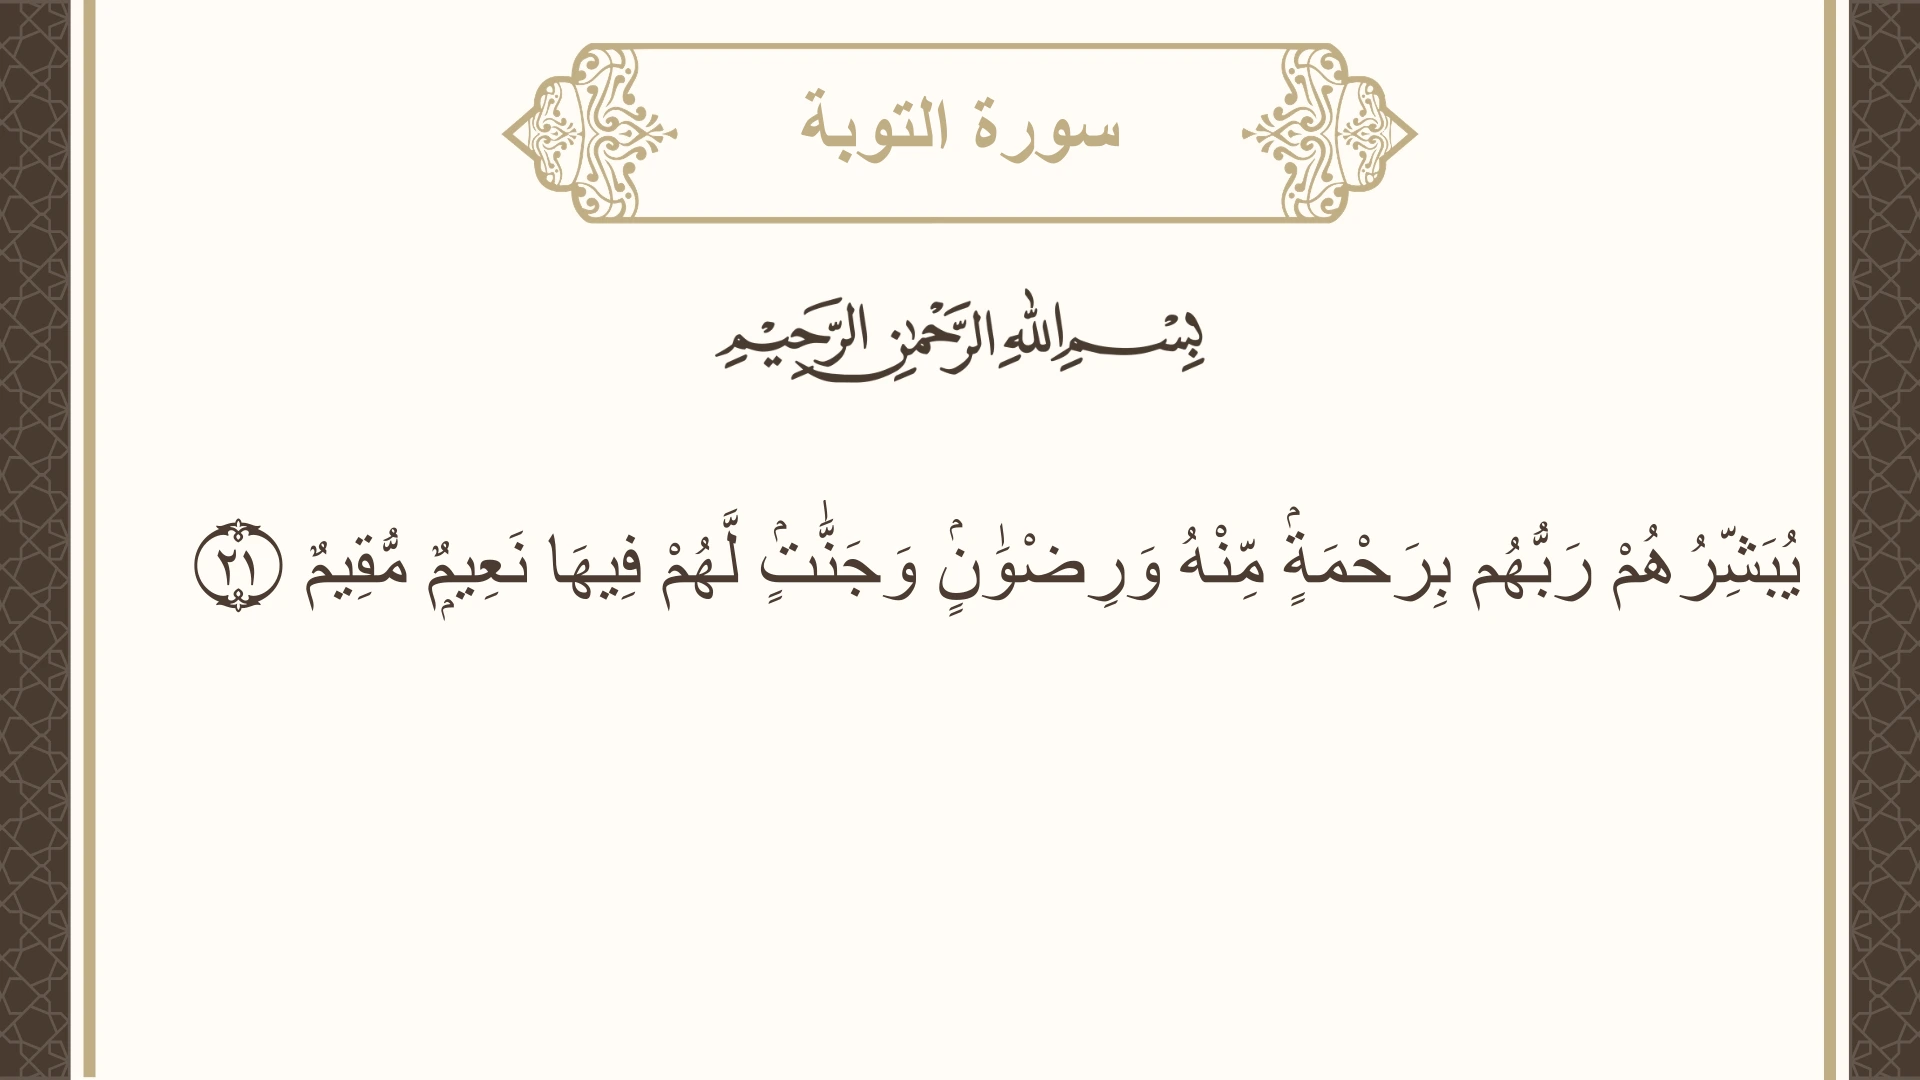 سورة التوبة
بِسْمِ اللهِ الرَّحْمٰنِ الرَّحِيْمِ
يُبَشِّرُهُمْ رَبُّهُم بِرَحْمَةٍۢ مِّنْهُ وَرِضْوَٰنٍۢ وَجَنَّـٰتٍۢ لَّهُمْ فِيهَا نَعِيمٌۭ مُّقِيمٌ ٢١